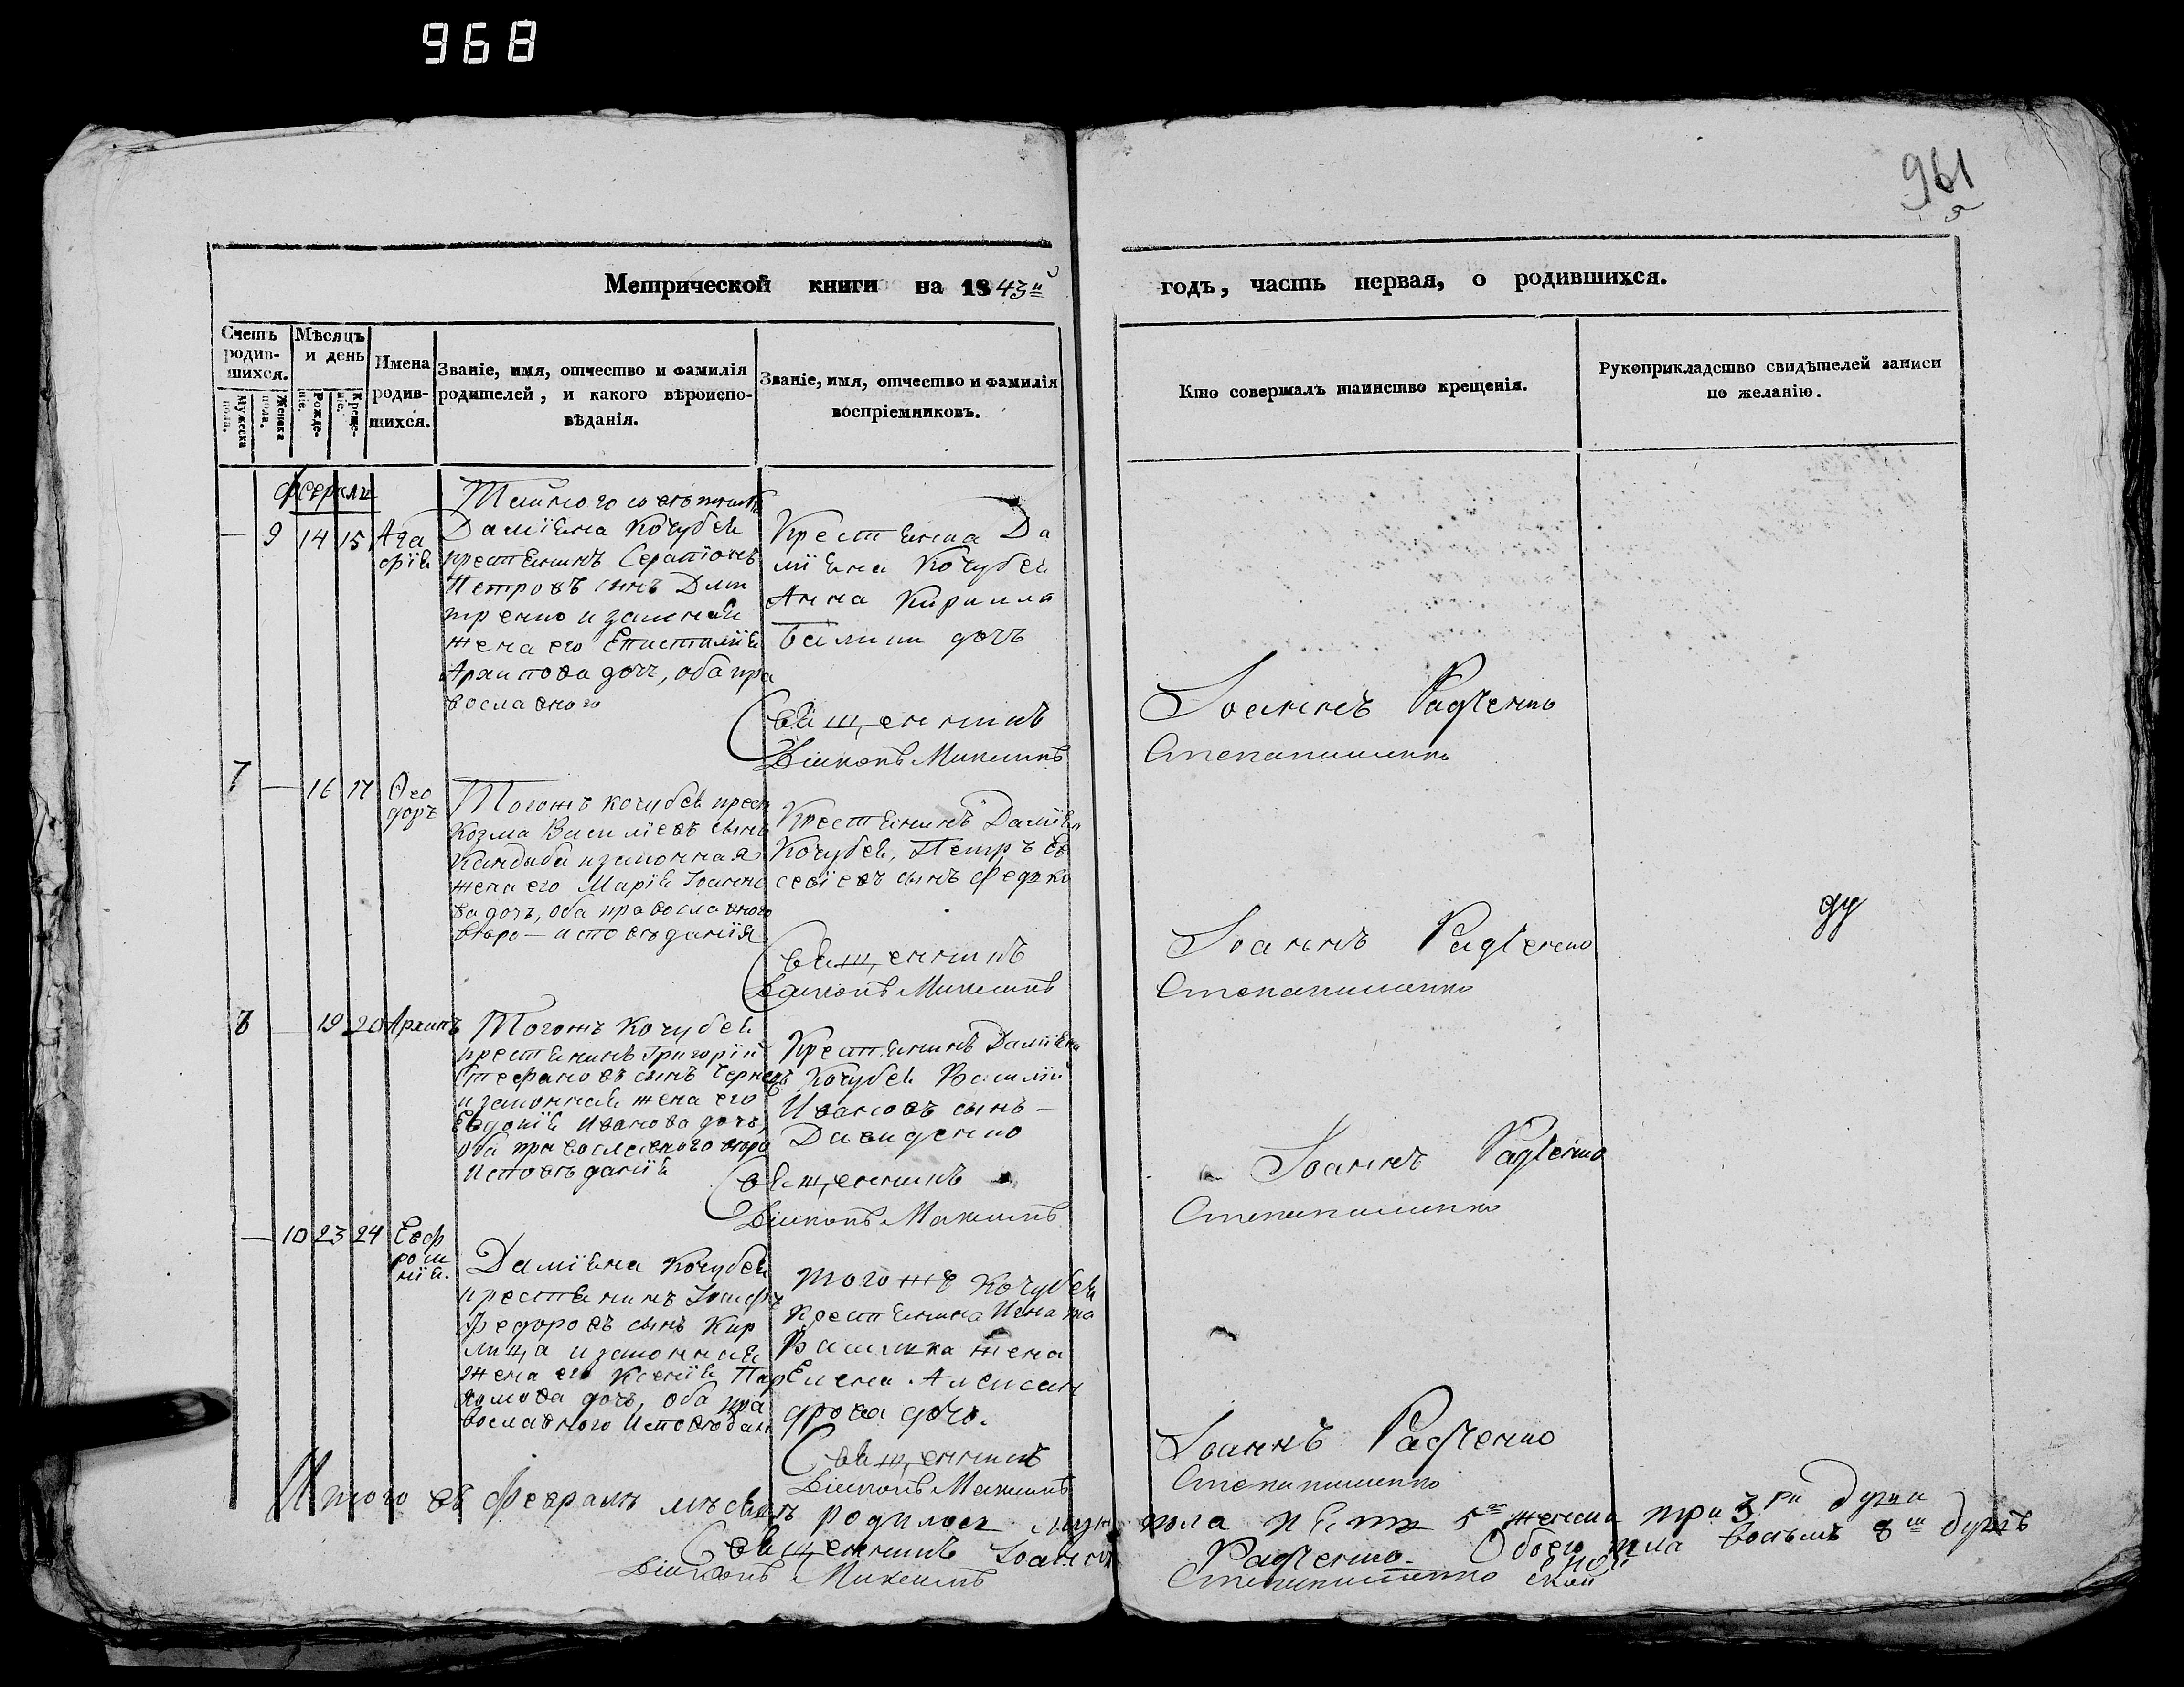 968
961
Метрической книги на 1843й годъ, часть первая, о родившихся.
Счетъ родившихся.
Мужеска пола.
Женска пола.
Мѣсяцъ и день
Рожденіе.
Крещеніе.
Имена родившихся.
Званіе, имя, отчество и фамилія родителей, и какого вѣроисповѣданія.
Званіе, имя, отчество и фамилія воспріемниковъ.
Кто совершалъ таинство крещенія.
Рукоприкладство свидѣтелей записи по желанію.
— 9 14 15 Ага
фія
Тайного совѣтника
Даміяна Кочубея
крестянинъ Серапіонъ
Петровъ сынъ Дми
тренко и законная
жена его Епистимія
Архипова дочь, оба пра
вославного
Крестянина Да
міяна Кочубея
Анна Кирилла
дочь
Священникъ Іоаннъ Радченко
Діяконъ Максимъ
7 — 16 17 Ѳео
доръ
Тогожъ Кочубея крест
Козма Василіевъ сынъ
Кандыба и законная
жена его Марія Іоанно
ва дочь, оба православного
вѣро-исповѣданія
Крестянинъ Даміян
Кочубея, Петръ Ев
севіевъ сынъ Федко
Священникъ Іоаннъ Радченко
Діяконъ Максимъ
8 — 19 20 Архипъ
Тогожъ Кочубея
крестянинъ Григорій
Стефановъ сынъ
и законная жена его
Евдокія Иванова дочь,
оба православного вѣро
исповѣданія
Крестянинъ Даміяна
Кочубея Василій
Ивановъ сынъ —
Давиденко
Священникъ Іоаннъ Радченко
Діяконъ Максимъ
— 10 23 24 Евф
роси
нія.
Даміяна Кочубея
крестянинъ Іосифъ
Федоровъ сынъ Кир
лица и законная
жена его Ксенія Пар
хомова дочь, оба пра
вославного исповѣдан
Тогожъ Кочубея
крестянина Игната
жена
Елена Алексан
дрова дочь.
Священникъ Іоаннъ Радченко
Діяконъ Максимъ
Итого въ Февралѣ мѣсяцѣ родилось муж пола пять 5ть женска три 3ри души
Обоего пола восьмъ 8м душъ
Священникъ Іоаннъ Радченко.
Діяконъ Максимъ